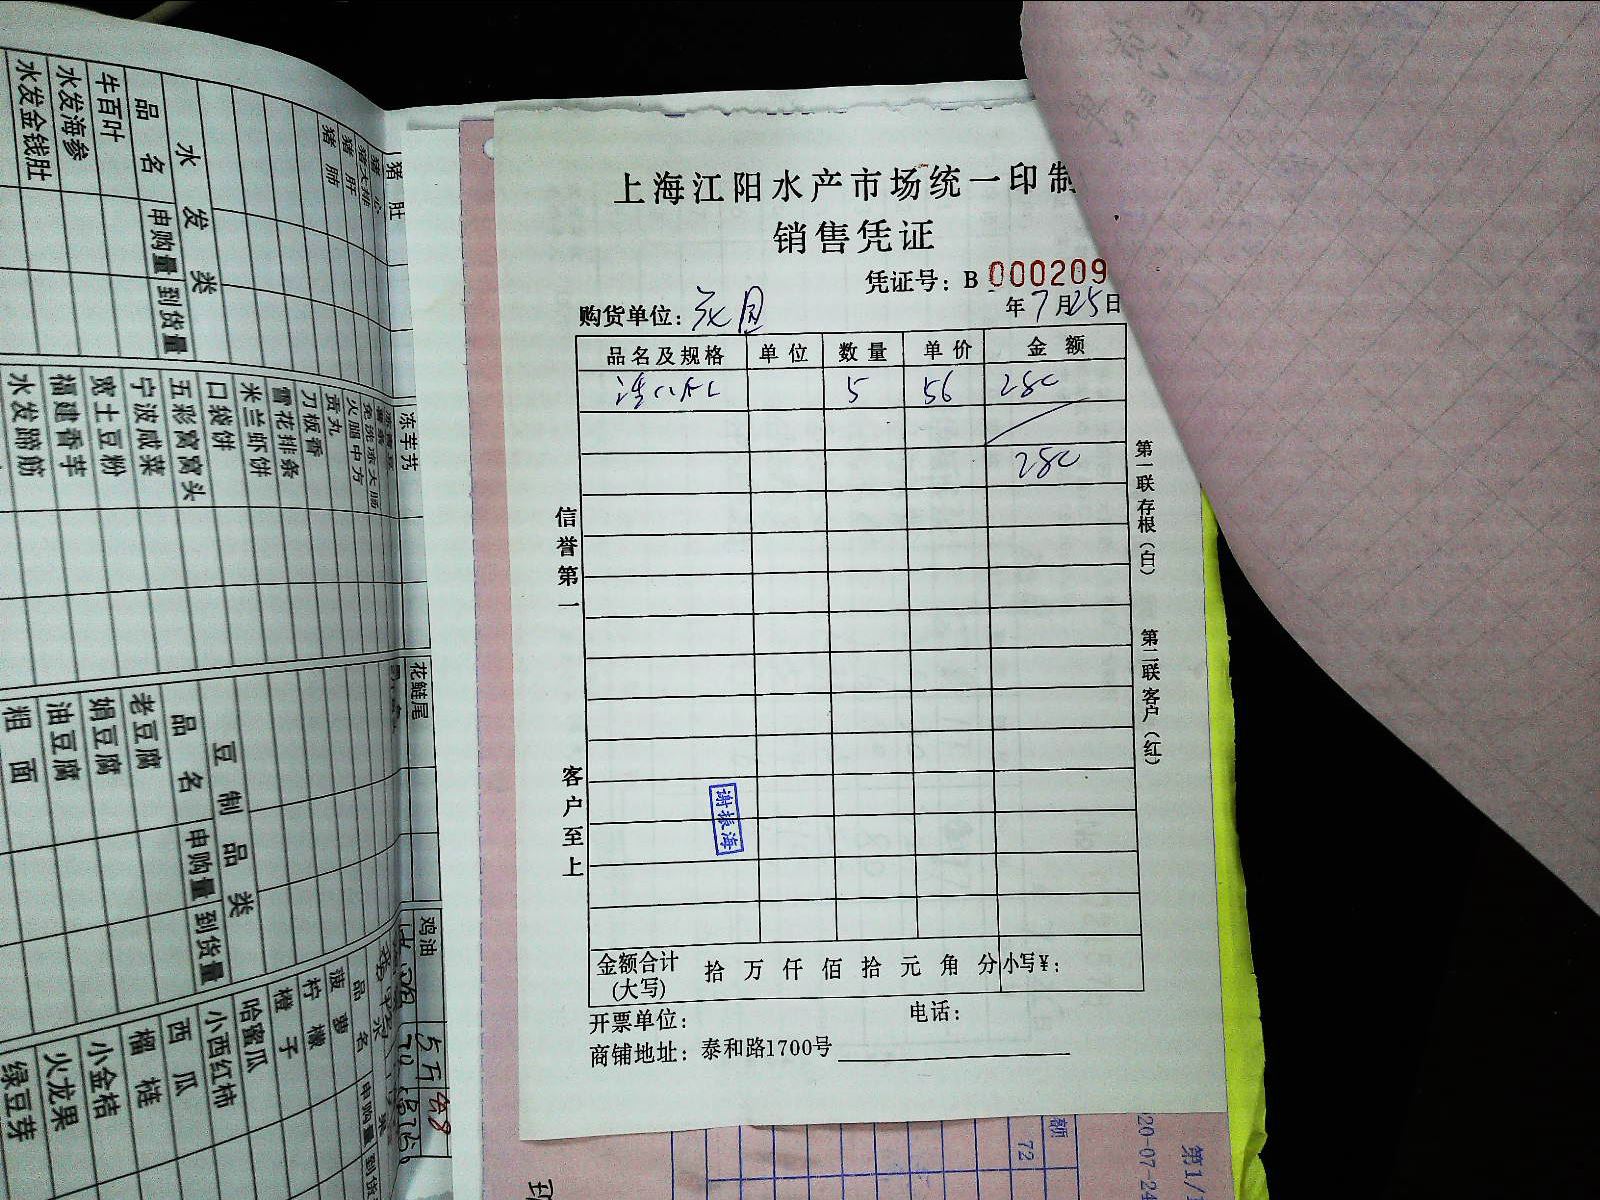 上海江阳水产市场统一印制
销售凭证
凭证号：B 000209
购货单位：
年7月25日
品名及规格 单位 数量 单价 金额
5 56 280
280
信誉第一
客户至上
第一联存根（白）
第二联客户（红）
谢振海
金额合计(大写) 拾 万 仟 佰 拾 元 角 分 小写¥：
开票单位： 电话：
商铺地址：泰和路1700号
水发类
品名 申购量 到货量
牛百叶
水发海参
水发金钱肚
猪肚
猪肝
猪肺
冻芋艿
免洗冻大肠
火腿中方
贡丸
刀板香
雪花排条
米兰虾饼
口袋饼
五彩窝窝头
宁波咸菜
宽土豆粉
福建香芋
水发蹄筋
花鲢尾
豆制品类
品名 申购量 到货量
老豆腐
娟豆腐
油豆腐
粗面
鸡油
5斤
品名 申购量 到货
菠萝
柠檬
橙子
哈蜜瓜
小西红柿
西瓜
榴梿
小金桔
火龙果
绿豆芽
额
72
20-07-24
第1/